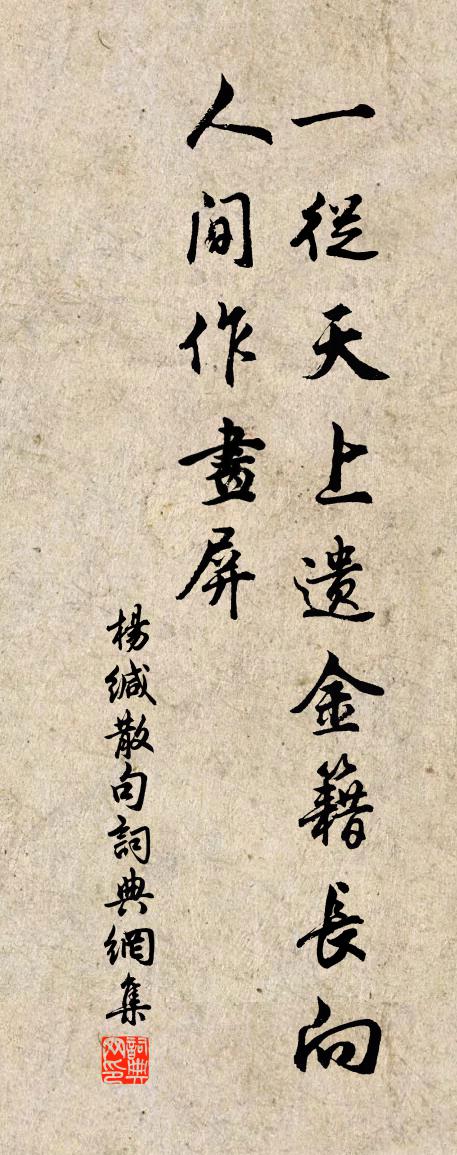 一從天上遺金籍長向
人間作畫屏
楊緘散句詞典網集
詞典網印